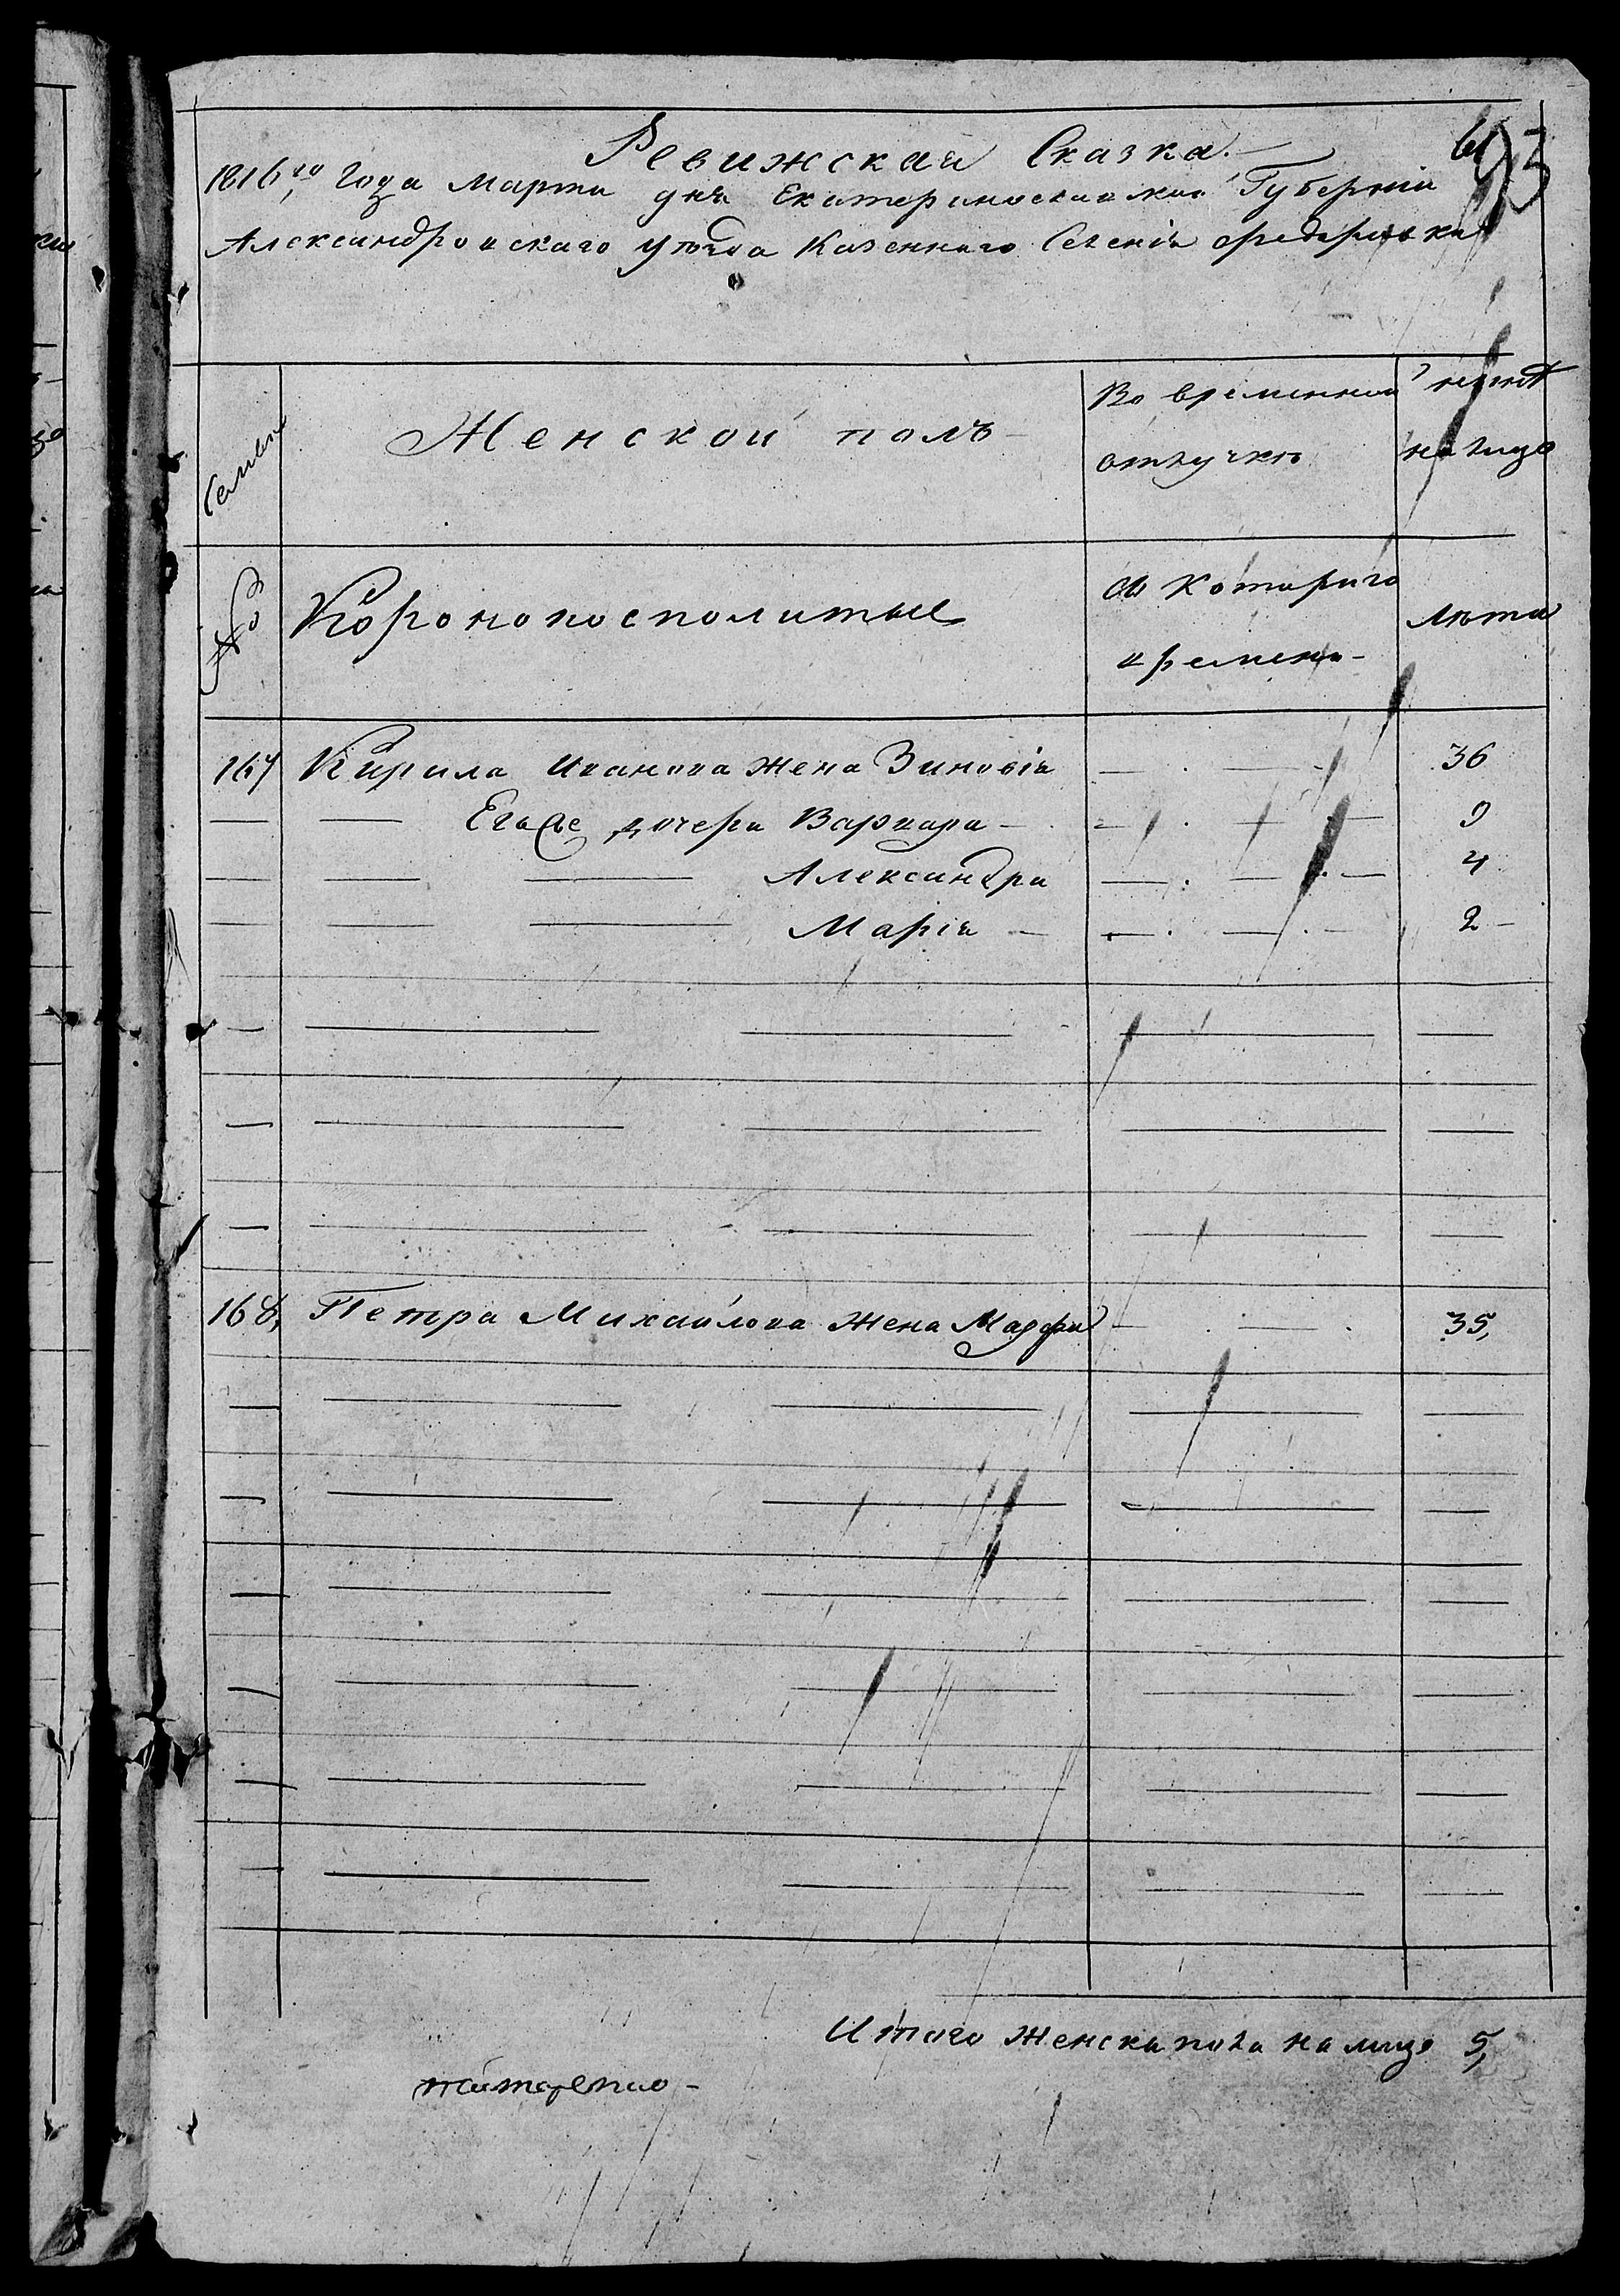 Ревижская Сказка.
93
1816го Года Марта дня Екатеринославской Губернии
Александровскаго уѣзда Казеннаго Селенія Федоровки
Семьи Женской полъ Во временной отлучкѣ нынѣ на лицо
№ Коронопосполитые съ Котораго времени лѣта
167 Кирила Иванова жена Зиновія — 36
— — Его же дочери Варвара — 9
— — — Александра — 4
— — — Марія — 2
168, Петра Михайлова жена Марфа — 35,
Итого женска пола на лицо 5,